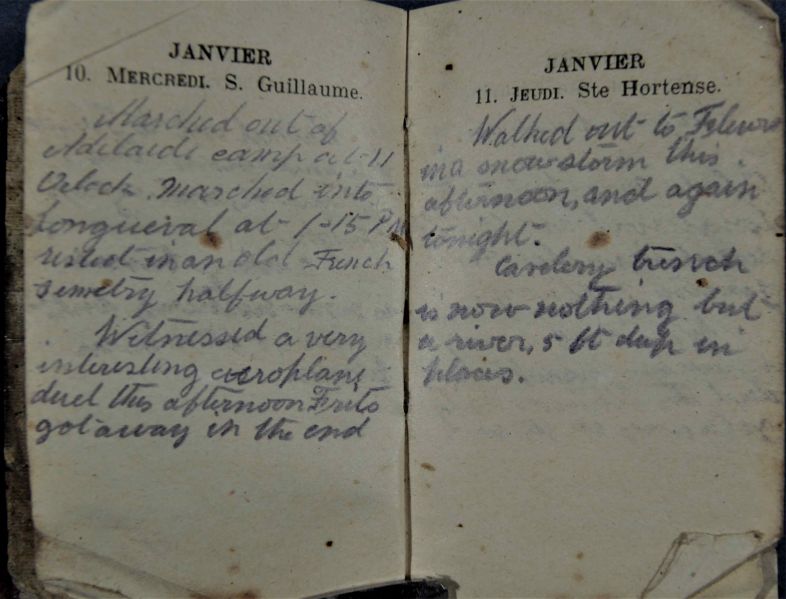 JANVIER
10. MERCREDI. S. Guillaume.
Marched out of
Adelaide camp at 11
Oclock. Marched into
Longueval at 1-15 PM
rested in an old French
semetry halfway.
Witnessed a very
interesting aeroplane
duel this afternoon Frits
got away in the end
JANVIER
11. JEUDI. Ste Hortense.
Walked out to
in a snowstorm this
afternoon, and again
tonight.
Cavelery trench
is now nothing but
a river, 5 ft deep in
places.